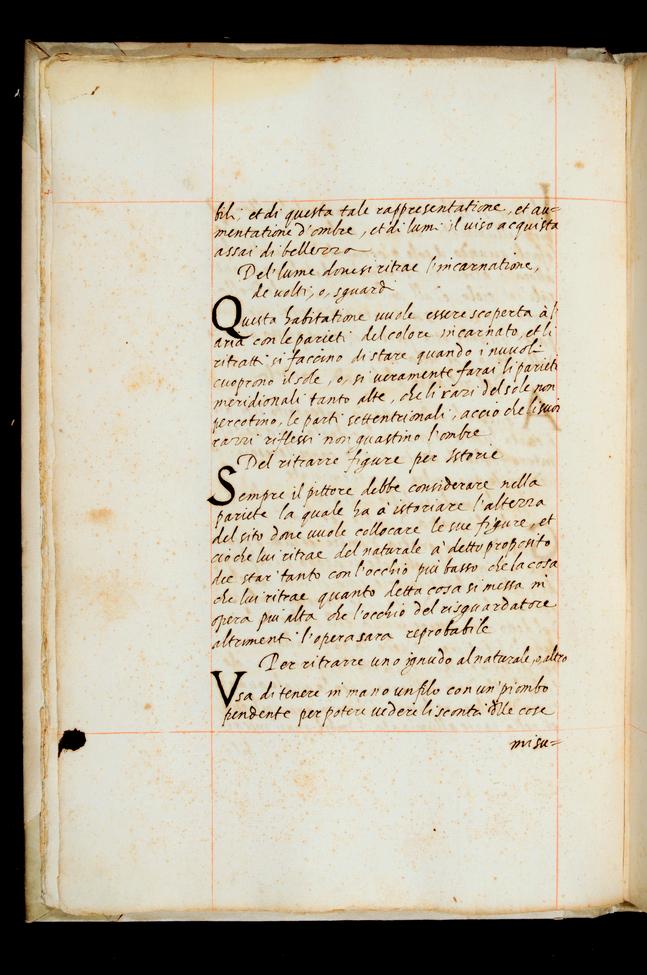 bili, et di questa tale rappresentatione, et au=
mentatione d'ombre, et di lumi il viso acquista
assai di bellezza
Del lume dove si ritrae l'incarnatione,
de volti, o, sguardi
Questa habitatione vuole essere scoperta à l'
aria con le parieti del colore incarnato, et li
ritratti si faccino di state quando i nuvoli
cuoprono il sole, o, si veramente farai li parieti
meridionali tanto alte, che li razi del sole non
percotino, le parti settentrionali, acciò che li suoi
razzi riflessi non guastino l'ombre
Del ritrarre figure per Istorie
Sempre il pittore debbe considerare nella
pariete la quale ha à istoriare l'altezza
del sito dove vuole collocare le sue figure, et
ciò che lui ritrae del naturale à detto proposito
dee star' tanto con l'occhio più basto che la cosa
che lui ritrae quanto detta cosa si messa in
opera più alta che l'occhio del risguardatore
altrimenti l'opera sara reprobabile
Per ritrarre uno ignudo al naturale, o, altro
Vsa di tenere in mano un filo con un' piombo
pendente per potere vedere li scontri delle cose
misu=